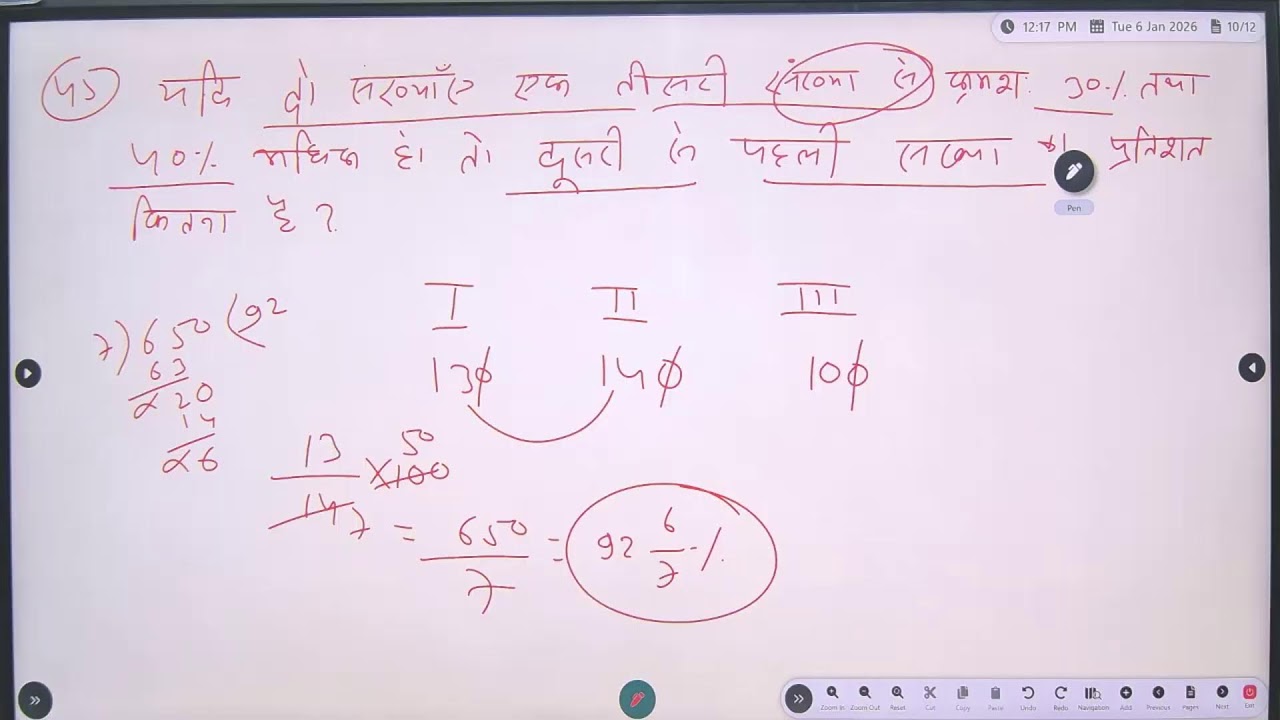 12:17 PM Tue 6 Jan 2026 10/12
यदि दो संख्याएँ एक तीसरी संख्या से क्रमशः 30% तथा
40% अधिक हो तो दूसरी से पहली संख्या का प्रतिशत
कितना है ?
Pen
I II III
130 140 100
7) 650 (92
63
20
14
6
13/14 × 100
50
7
= 650/7 = 92 6/7 %
Zoom In Zoom Out Reset Cut Copy Paste Undo Redo Navigation Add Previous Pages Next Exit